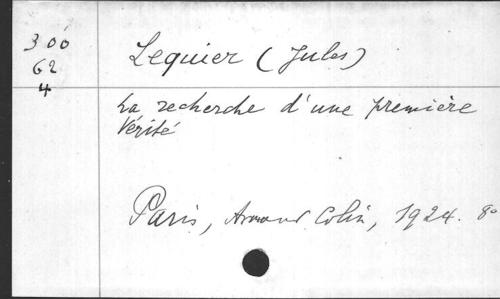 300
62
4
Lequier (Jules)
La recherche d'une première
Vérité
Paris, Armand Colin, 1924. 8o